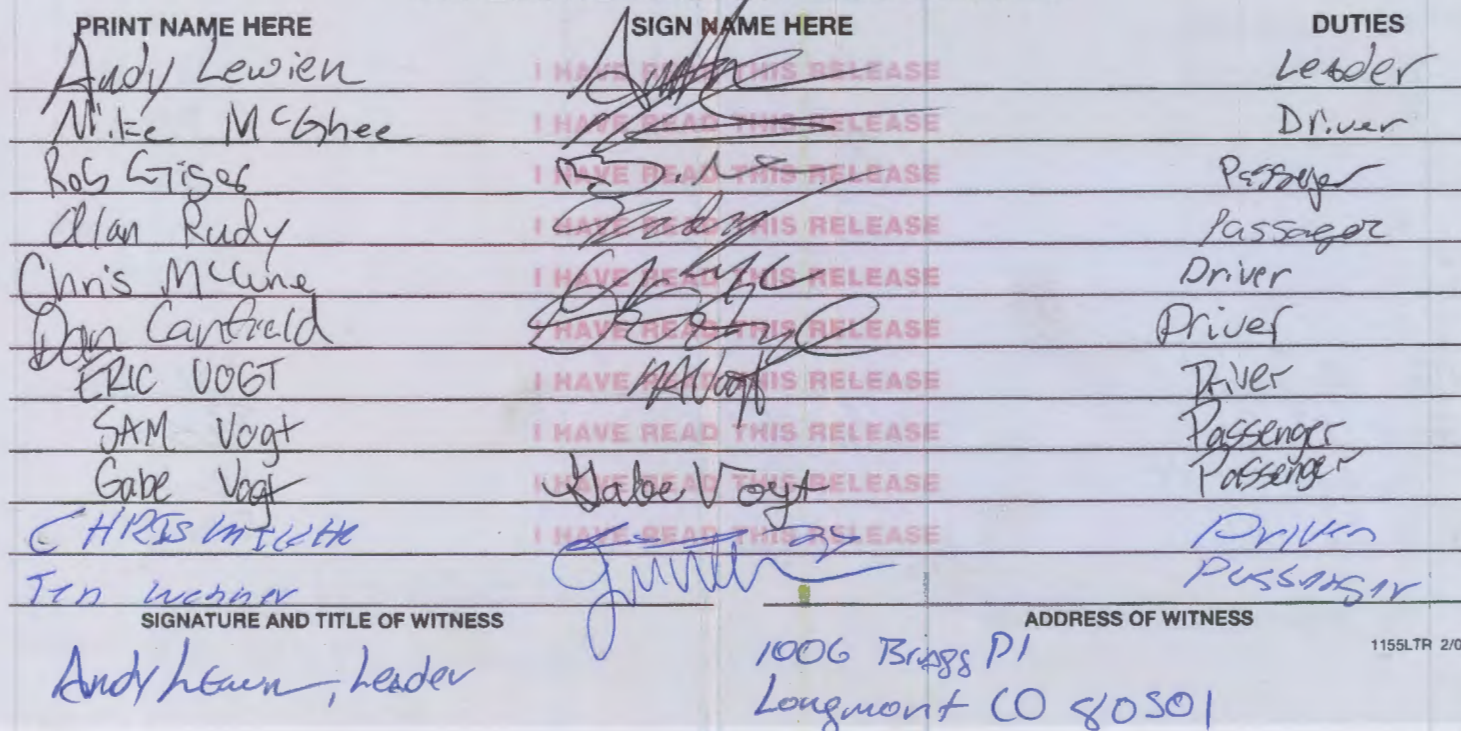 PRINT NAME HERE SIGN NAME HERE DUTIES
Andy Lewien I HAVE READ THIS RELEASE Leader
Mike McGhee I HAVE READ THIS RELEASE Driver
Rob I HAVE READ THIS RELEASE Passeger
Allan Rudy I HAVE READ THIS RELEASE Passager
Chris McCune I HAVE READ THIS RELEASE Driver
Dan Canfield I HAVE READ THIS RELEASE Driver
ERIC VOGT I HAVE READ THIS RELEASE Driver
SAM Vogt I HAVE READ THIS RELEASE Passenger
Gabe Vogt I HAVE READ THIS RELEASE Gabe Vogt Passenger
CHRIS I HAVE READ THIS RELEASE Driver
Passenger
SIGNATURE AND TITLE OF WITNESS ADDRESS OF WITNESS
1155LTR 2/0
Andy Lewien, Leader 1006 Briggs Pl
Longmont CO 80501